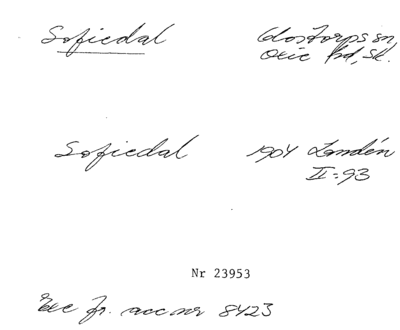 Sofiedal Glostorps sn
Oxie hd, Sk.
Sofiedal 1904 Landén
II:93
Nr 23953
Exc fr. acc nr 8423